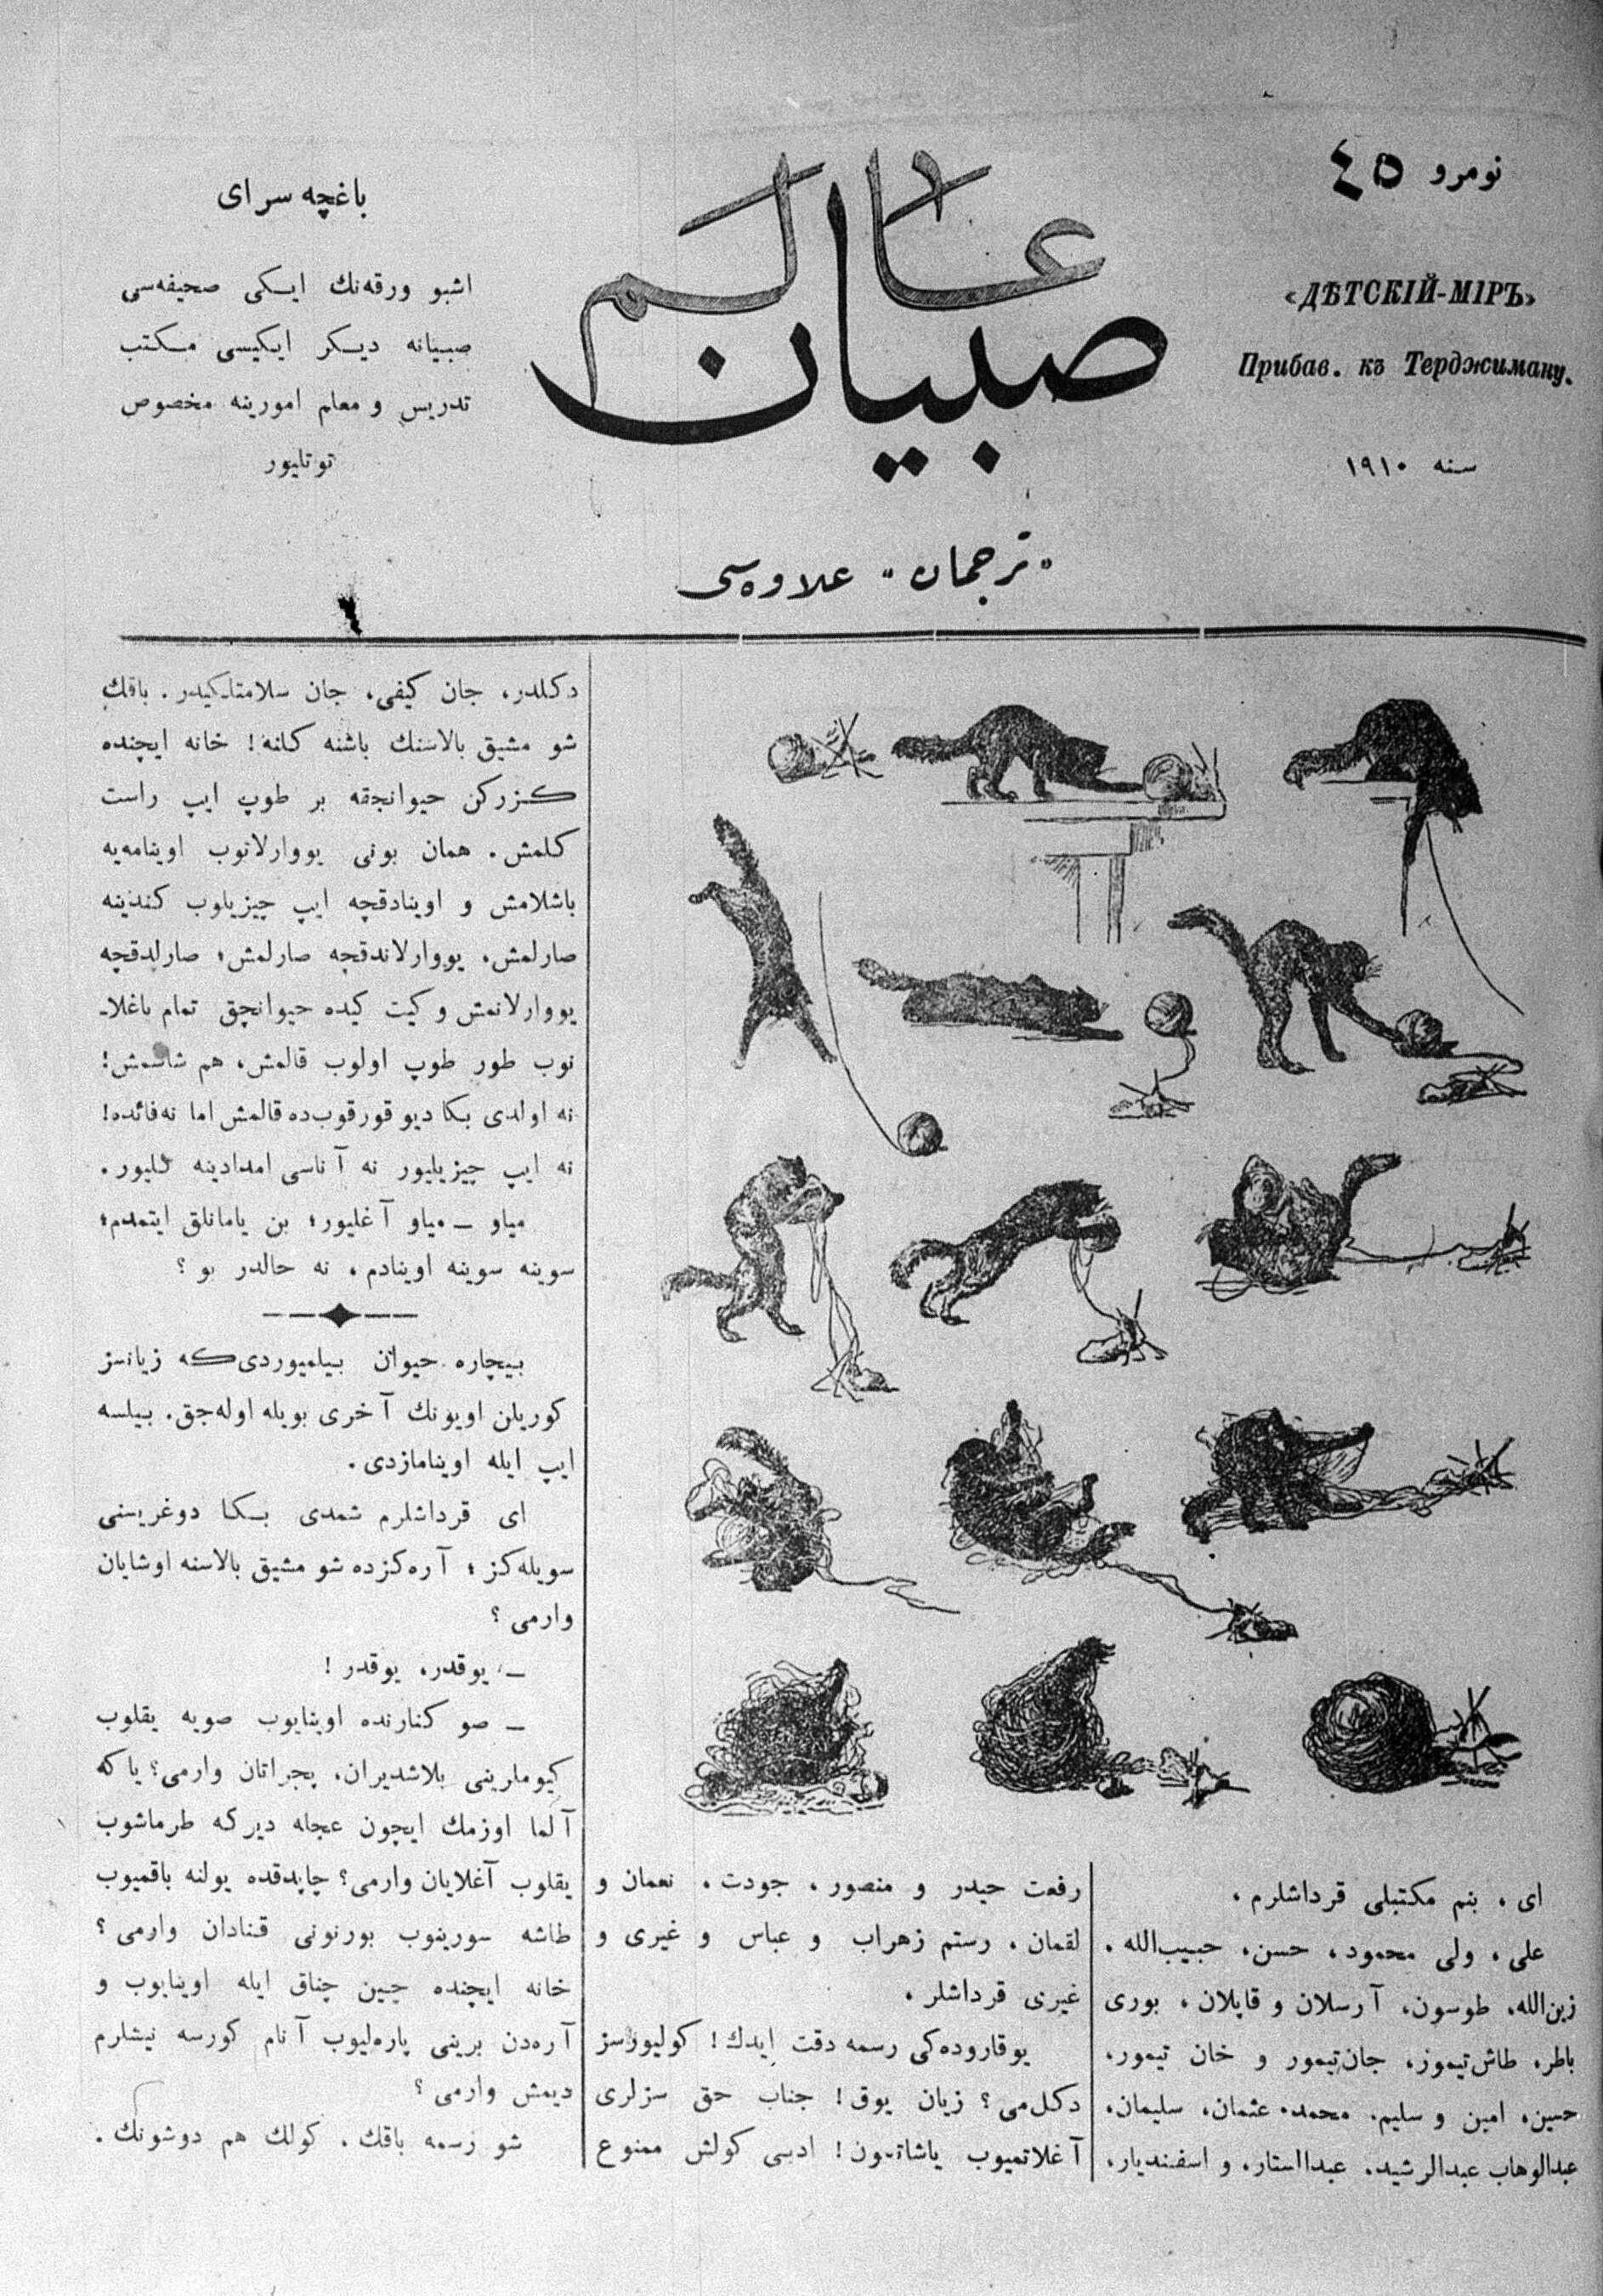 نومرو ٤٥
«ДѢТСКІЙ-МІРЪ»
Прибав. къ Терджиману.
سنه ١٩١٠
عالم
صبيان
"ترجمان" علاوه‌سی
باغچه سرای
اشبو ورقه‌نك ایكی صحیفه‌سی
صبیانه دیكر ایكیسی مكتب
تدریس و معلم امورینه مخصوص
توتلیور
ای، بنم مكتبلی قرداشلرم،
علی، ولی محمود، حسن، حبیب‌الله،
زین‌الله، طوسون، آرسلان و قاپلان، بوری
باطر، طاش‌تیمور، جان‌تیمور و خان تیمور،
حسین، امین و سلیم، محمد، عثمان، سلیمان،
عبدالوهاب عبدالرشید، عبدالستار، و اسفندیار،
رفعت حیدر و منصور، جودت، نعمان و
لقمان، رستم زهراب و عباس و غیری و
غیری قرداشلر،
یوقاروده‌كی رسمه دقت ایدك! كولیورسز
دكل‌می؟ زیان یوق! جناب حق سزلری
آغلاتمیوب یاشاتسون! ادبی كولش ممنوع
دكلدر، جان كیفی، جان سلامتلكیدر. باقك
شو مشیق بالاسنك باشنه كلنه! خانه ایچنده
كزركن حیوانجقه بر طوپ ایپ راست
كلمش. همان بونی یووارلانوب اوینامه‌یه
باشلامش و اوینادقچه ایپ چیزیلوب كندینه
صارلمش، یووارلاندقچه صارلمش؛ صارلدقچه
یووارلانمش و كیت كیده حیوانچق تمام باغلا-
نوب طور طوپ اولوب قالمش، هم شاشمش!
نه اولدی بكا دیو قورقوب‌ده قالمش اما نه‌فائده!
نه ایپ چیزیلیور نه آناسی امدادینه كلیور.
میاو – میاو آغلیور؛ بن یامانلق ایتمدم؛
سوینه سوینه اوینادم، نه حالدر بو؟
بیچاره حیوان بیلمیوردی‌كه زیانسز
كوریلن اویونك آخری بویله اوله‌جق. بیلسه
ایپ ایله اوینامازدی.
ای قرداشلرم شمدی بكا دوغریسنی
سویله‌كز؛ آره‌كزده شو مشیق بالاسنه اوشایان
وارمی؟
– یوقدر، یوقدر!
– صو كنارنده اوینایوب صویه یقلوب
كیوملرینی بلاشدیران، پجراتان وارمی؟ یاكه
آلما اوزمك ایچون عجله دیركه طرماشوب
یقلوب آغلایان وارمی؟ چاپدقده یولنه باقمیوب
طاشه سورینوب بورنونی قنادان وارمی؟
خانه ایچنده چین چناق ایله اوینایوب و
آره‌دن برینی پاره‌لیوب آنام كورسه نیشلرم
دیمش وارمی؟
شو رسمه باقك، كولك هم دوشونك.